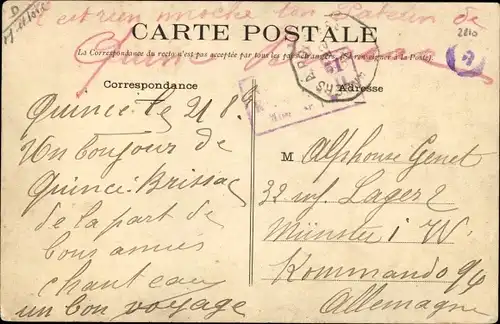 D
2810
est rien moche ton patelin de
Quincé Brissac
CARTE POSTALE
La Correspondance du recto n'est pas acceptée par tous les pays étrangers. (Se renseigner à la Poste).
Correspondance
Adresse
Quincé le 21 8
Un bonjour de
Quincé-Brissac
de la part de
bons amis
chanteau
un bon voyage
M Alphonse Genet
32 inf Lager 2
Münster i W.
Kommando 94
Allemagne